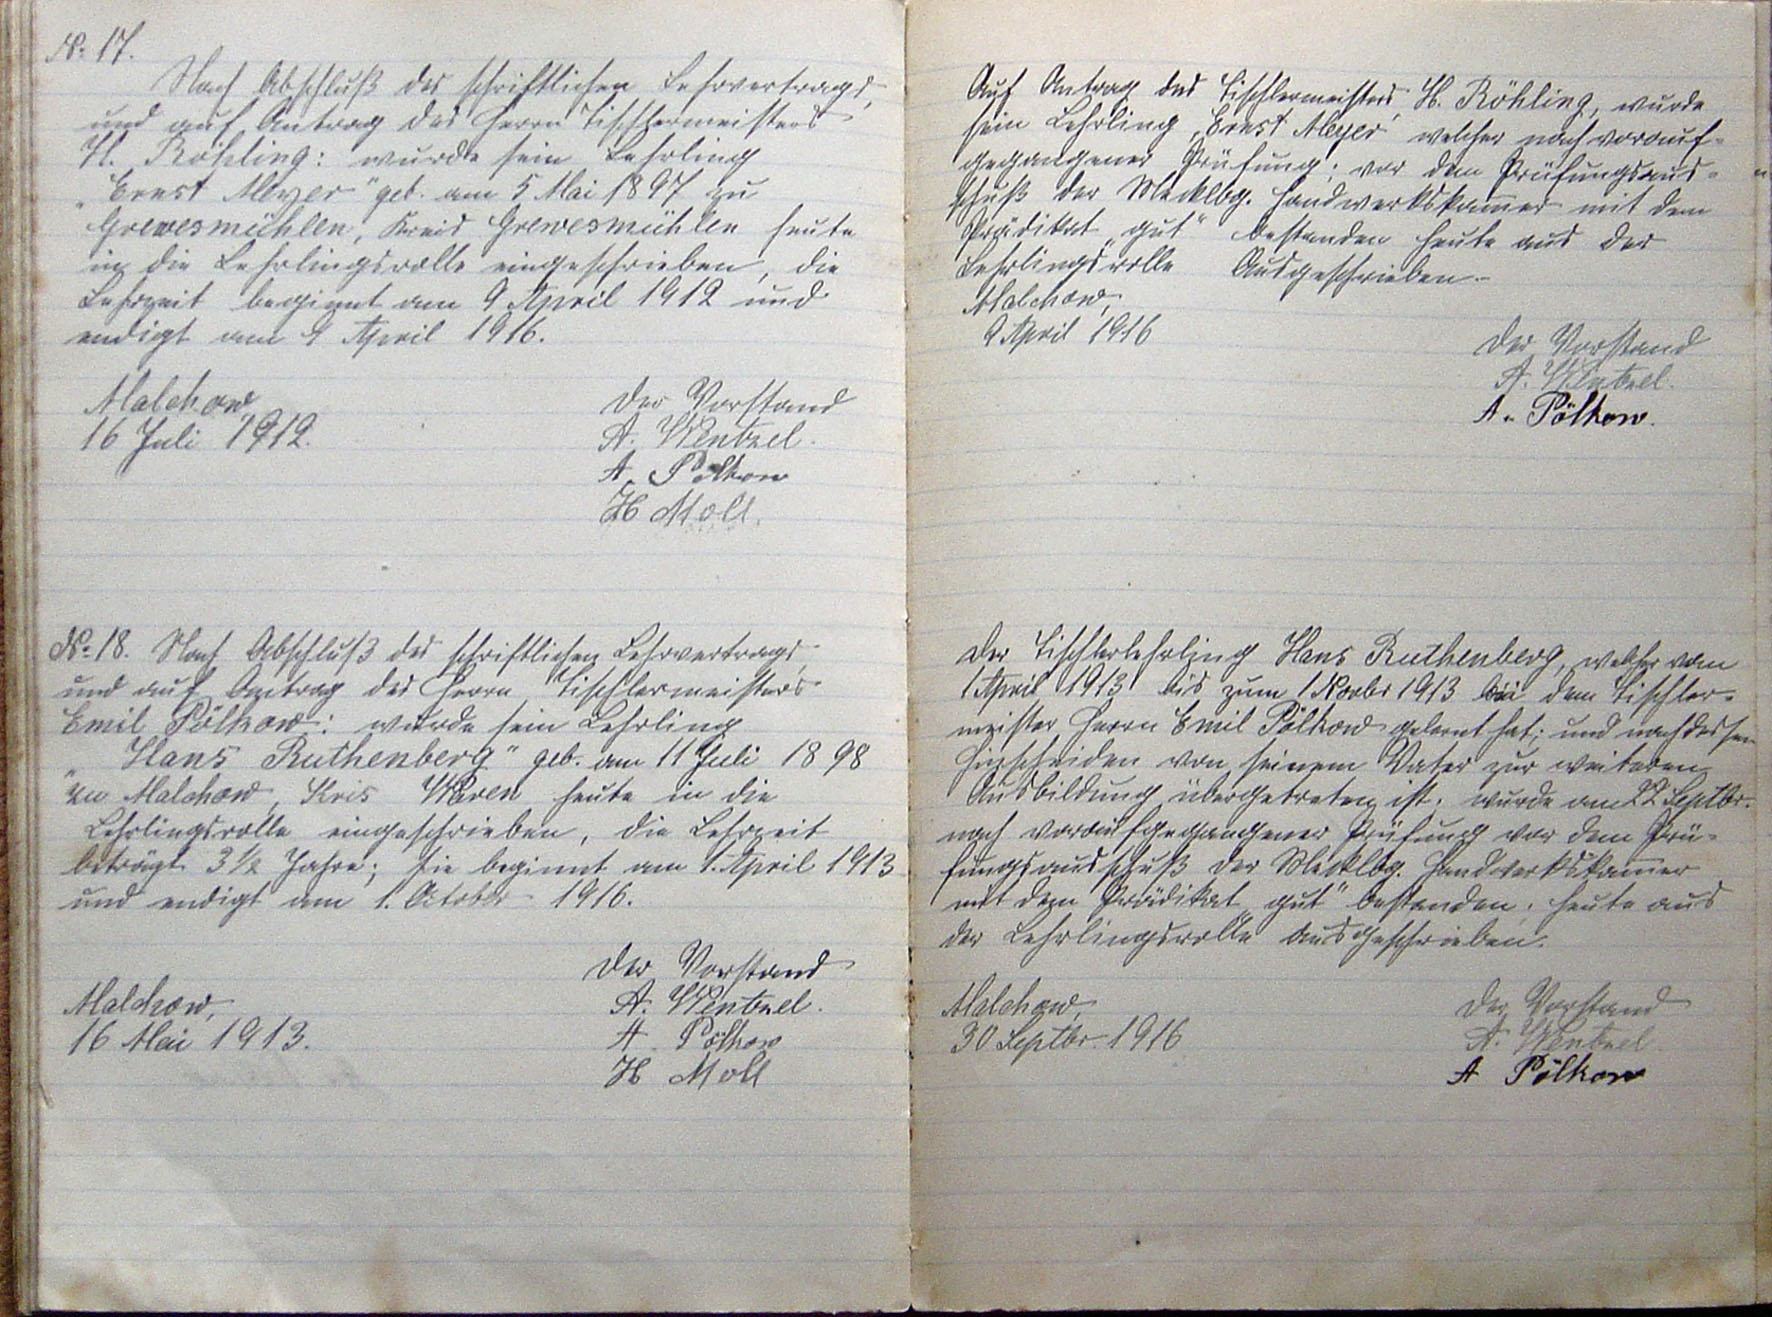 No 17.
Nach Abschluß des schriftlichen Lehrvertrags,
und auf Antrag des Herrn Tischlermeisters
H. Röhling: wurde sein Lehrling
„Ernst Meyer" geb. am 5 Mai 1897 zu
Grevesmühlen, Kreis Grevesmühlen heute
in die Lehrlingsrolle eingeschrieben, die
Lehrzeit beginnt am 9 April 1912 und
endigt am 9 April 1916.
Malchow,
16 Juli 1912.
Der Vorstand
A. Wentzel.
A. Pölkow
H Moll.
No 18. Nach Abschluß des schriftlichen Lehrvertrags,
und auf Antrag des Herrn Tischlermeisters
Emil Pölkow: wurde sein Lehrling
„Hans Ruthenberg" geb. am 11 Juli 1898
zu Malchow, Kris Waren heute in die
Lehrlingsrolle eingeschrieben, die Lehrzeit
beträgt 3½ Jahre; sie beginnt am 1. April 1913
und endigt am 1. October 1916.
Der Vorstand
Malchow,
16 Mai 1913.
A. Wentzel.
A. Pölkow
H Moll
Auf Antrag des Tischlermeisters H. Röhling, wurde
sein Lehrling „Ernst Meyer" welcher nach vorauf-
gegangener Prüfung; vor dem Prüfungsaus-
schuß der Mecklbg. Handwerkskammer mit dem
Prädikat „gut" bestanden heute aus der
Lehrlingsrolle Ausgeschrieben.
Malchow,
9 April 1916
Der Vorstand
A. Wentzel.
A. Pölkow.
Der Tischlerlehrling Hans Ruthenberg, welcher vom
1 April 1913 bis zum 1 Novbr 1913 bei dem Tischler-
meister Herrn Emil Pölkow gelernt hat; und nach dessen
Hinscheiden von seinem Vater zur weiteren
Ausbildung übergetreten ist; wurde am 22 Septbr.
nach voraufgegangener Prüfung vor dem Prü-
fungsausschuß der Mecklbg. Handwerkskammer
mit dem Prädikat „gut" bestanden; heute aus
der Lehrlingsrolle ausgeschrieben.
Malchow,
30 Septbr. 1916
Der Vorstand
A. Wentzel.
A Pölkow